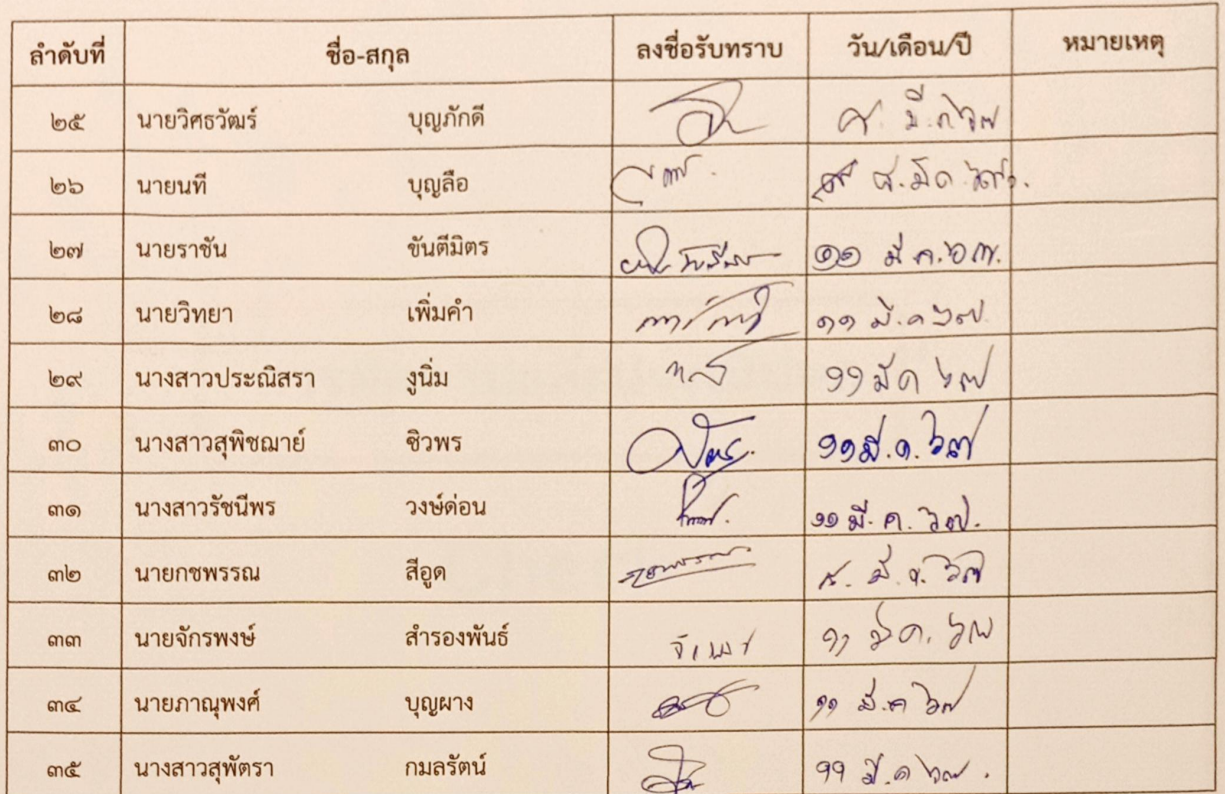 ลำดับที่ ชื่อ-สกุล ลงชื่อรับทราบ วัน/เดือน/ปี หมายเหตุ
๒๕ นายวิศธวัฒร์ บุญภักดี ๘. มี.ค ๖๗
๒๖ นายนที บุญลือ ๘. มี.ค. ๖๗
๒๗ นายราชัน ขันตีมิตร ๑๑ มี.ค. ๖๗.
๒๘ นายวิทยา เพิ่มคำ ๑๑ มี.ค ๖๗.
๒๙ นางสาวประณิสรา งูนิ่ม ๑๑ มี.ค ๖๗
๓๐ นางสาวสุพิชฌาย์ ชิวพร ๑๑ มี.ค. ๖๗
๓๑ นางสาวรัชนีพร วงษ์ด่อน ๑๑ มี.ค. ๖๗.
๓๒ นายกชพรรณ สีอูด กชพรรณ ๘. มี.ค. ๖๗
๓๓ นายจักรพงษ์ สำรองพันธ์ ๑๑ มี.ค. ๖๗
๓๔ นายภาณุพงศ์ บุญผาง ๑๑ มี.ค ๖๗
๓๕ นางสาวสุพัตรา กมลรัตน์ ๑๑ มี.ค ๖๗.